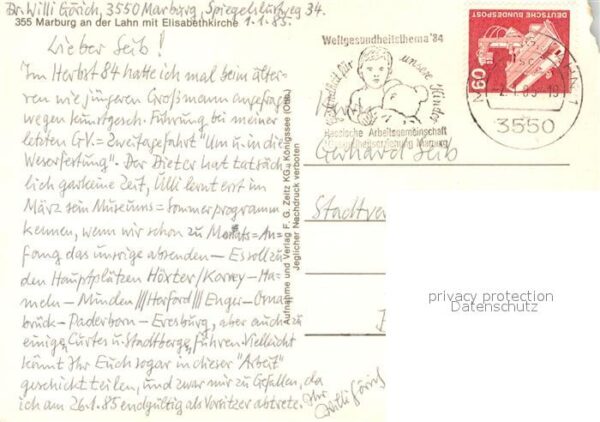 Dr. Willi Görich, 3550 Marburg, Spiegelslustweg 34.
355 Marburg an der Lahn mit Elisabethkirche
1.1.85.
Lieber Seib!
Im Herbst 84 hatte ich mal beim älte-
ren wie jüngeren Großmann angefragt
wegen kunstgesch. Führung bei meiner
letzten GV.= Zweitagefahrt "Um u. in die
Weserfestung". Der Dieter hat tatsäch-
lich garkeine Zeit, Ulli lernt erst im
März sein Museums=Sommerprogramm
kennen, wenn wir schon zu Monats=An-
fang das unsrige absenden – Es soll zu
den Hauptplätzen Höxter/Korvey – Ha-
meln – Minden /// Herford /// Enger – Osna-
brück – Paderborn – Eresburg, aber auch zu
einige Curtes u. Stadtberge führen. Vielleicht
könnt Ihr Euch sogar in dieser "Arbeit"
geschickt teilen, und zwar mir zu Gefallen, da
ich am 26.1.85 endgültig als Vorsitzer abtrete.
Ihr Willi Görich
Aufnahme und Verlag F. G. Zeitz KG., Königssee (Obb.)
Jeglicher Nachdruck verboten
Weltgesundheitsthema '84
Gesundheit für unsere Kinder
Hessische Arbeitsgemeinschaft
Gesundheitserziehung Marburg
DEUTSCHE BUNDESPOST
60
3550
Gerhard Seib
privacy protection
Datenschutz